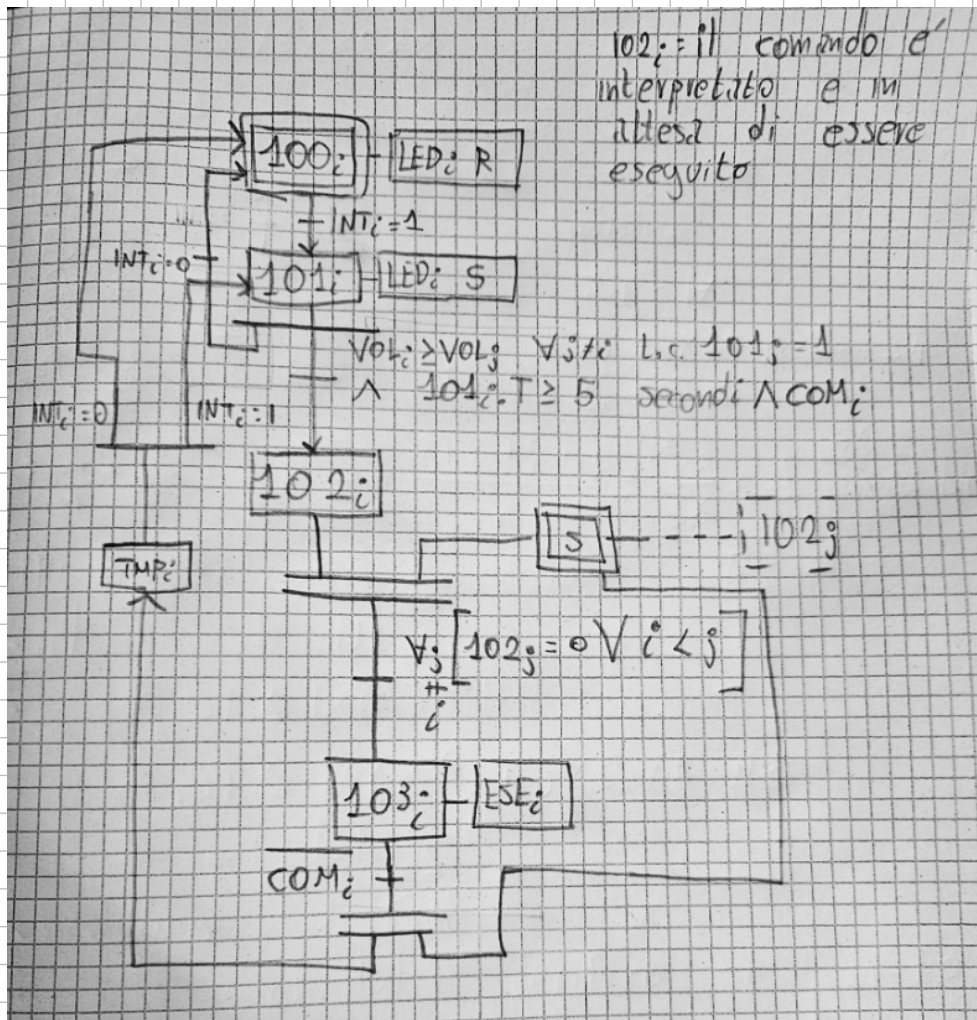 102i = il comando e'
interpretato e in
attesa di essere
eseguito
100i LEDi R
INTi = 1
INTi = 0
101i LEDi S
VOLi ≥ VOLj ∀j≠i t.c. 101j = 1
∧ 101i.T ≥ 5 secondi ∧ COMi
INTi = 0 INTi = 1
102i
S 102j
TMPi
∀j≠i [102j = 0 ∨ i < j]
103i ESEi
C̅O̅M̅i̅